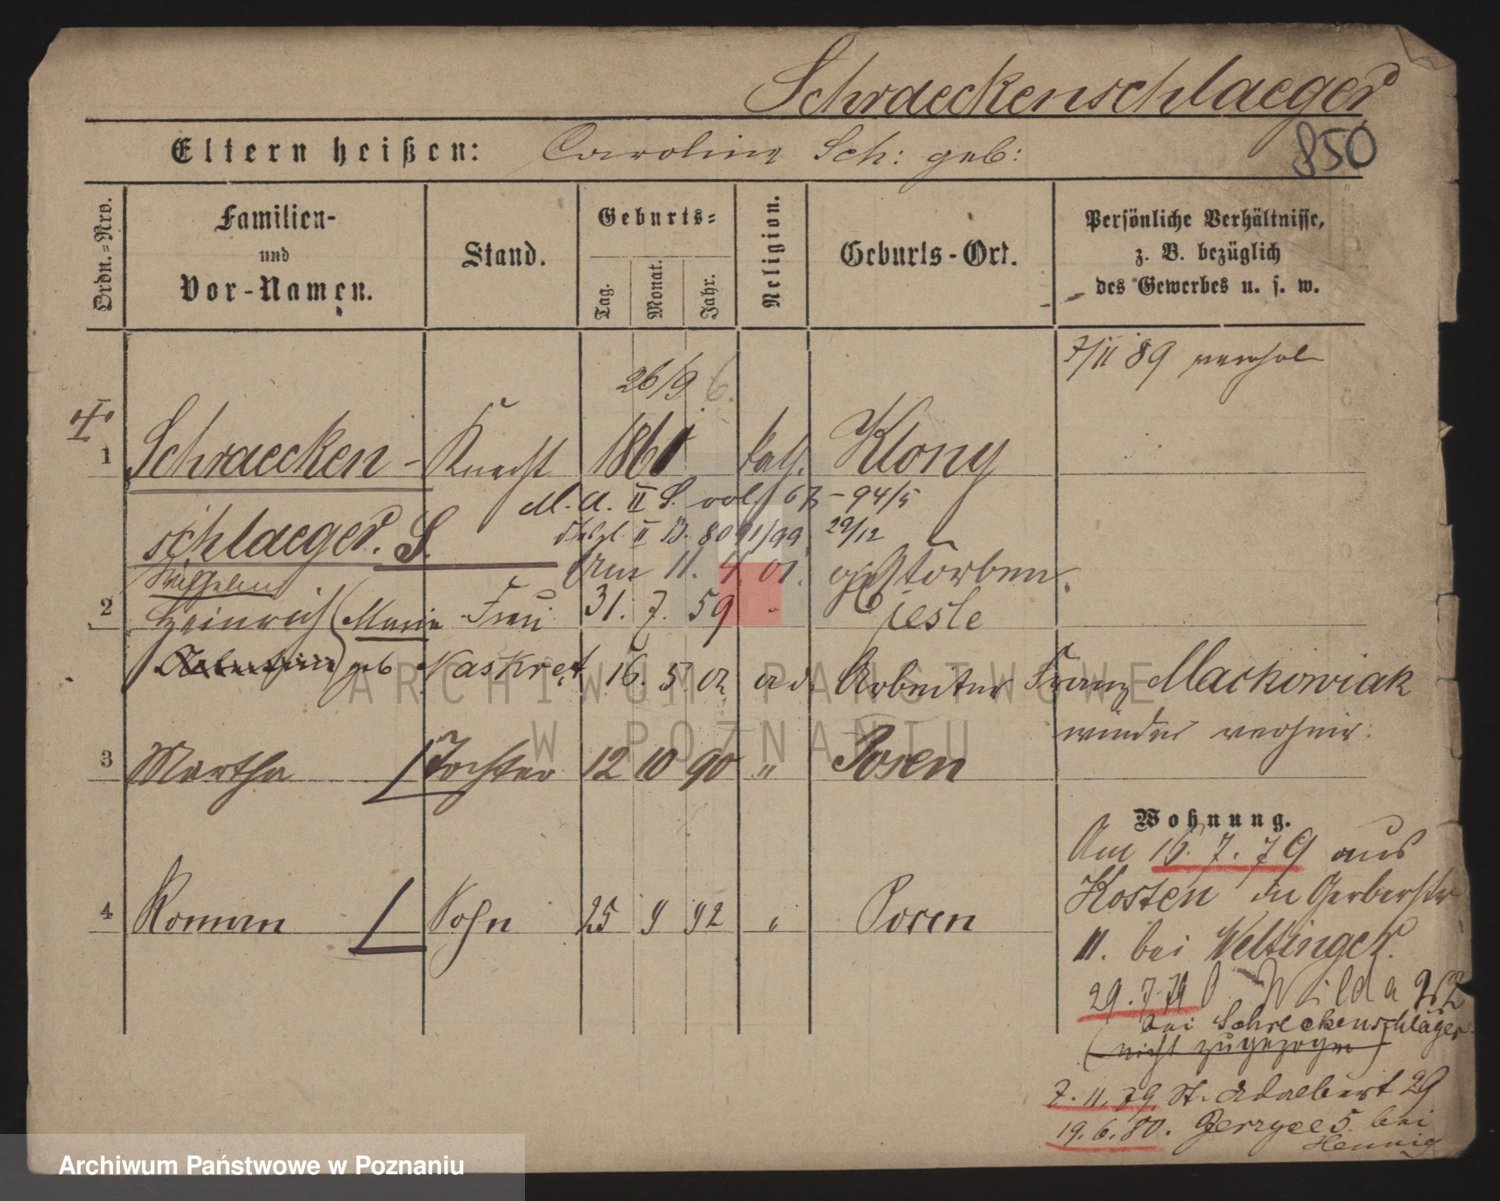 Schraeckenschlaeger
850
Eltern heißen: Carolina Sch: geb:
Ordn.-Nro.
Familien- und Vor-Namen.
Stand.
Geburts-
Tag.
Monat.
Jahr.
Religion.
Geburts-Ort.
Persönliche Verhältnisse,
z. B. bezüglich
des Gewerbes u. s. w.
7/11 89
26/9 6.
1 Schraecken- Knecht 1861 kath. Klony
M. A. II S. vol. 67 - 94/5
schlaeger. S.
II B. 80 91/99 29/12
Am 11. 4. 01. gestorben.
Wilhelm
2 Heinrich (Marie Frau 31. 7. 59 "
geb Naskret 16. 5. 02 Arbeiter Franz Mackowiak
wieder verheir.
3 Martha Tochter 12 10 90 " Posen
Wohnung.
Am 16. 7. 79 aus
Kosten
4 Roman Sohn 25 9 92 " Posen
11. bei Weltinger.
29. 7. 79 Wilda
bei Schreckenschläger
(nicht zugezogen)
7. 11. 79 St. Adalbert 29
19. 6. 80. Jerzyce 5. bei
Hennig
ARCHIWUM PAŃSTWOWE
W POZNANIU
Archiwum Państwowe w Poznaniu